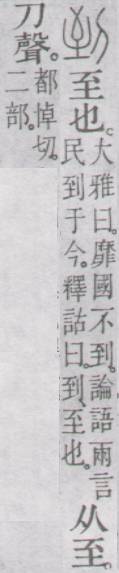 到 至也。
大雅曰。靡國不到。論語兩言
民到于今。釋詁曰。到、至也。
从至。
刀聲。
都悼切。
二部。